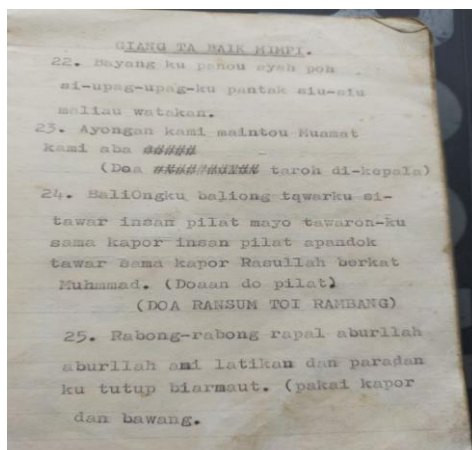 GIANG TA BAIK MIMPI.
22. Bayang ku panou ayah poh
si-upag-upag-ku pantak siu-siu
maliau watakan.
23. Ayongan kami maintou Muamat
kami aba #####
(Doa taroh di-kepala)
24. BaliOngku baliong tqwarku si-
tawar insan pilat mayo tawaron-ku
sama kapor insan pilat apandok
tawar sama kapor Rasullah berkat
Muhmmad. (Doaan do pilat)
(DOA RANSUM TOI RAMBANG)
25. Rabong-rabong rapal aburllah
aburllah ami latikan dan paradan
ku tutup biarmaut. (pakai kapor
dan bawang.